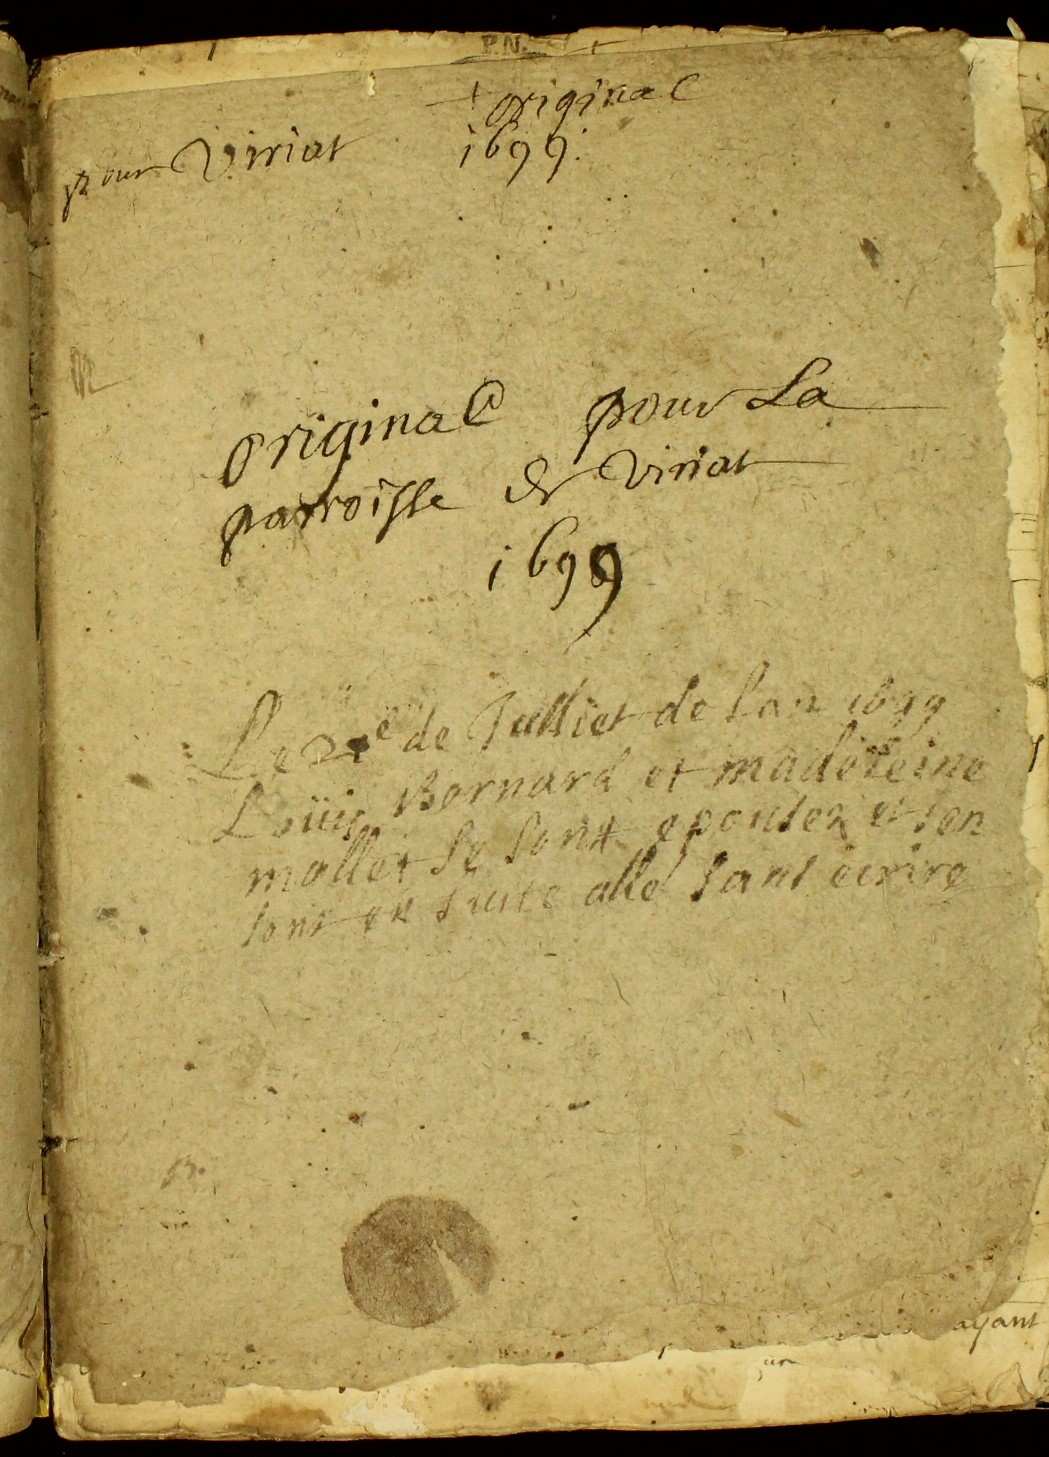 P.N.
original
pour Viriat 1699.
original pour La
parroisse de Viriat
1699
Le 21e de Julliet de lan 1699
Loüis Bernard et madeleine
mollet se sont epousez et sen
sont en suite allé sans ecrire
ayant